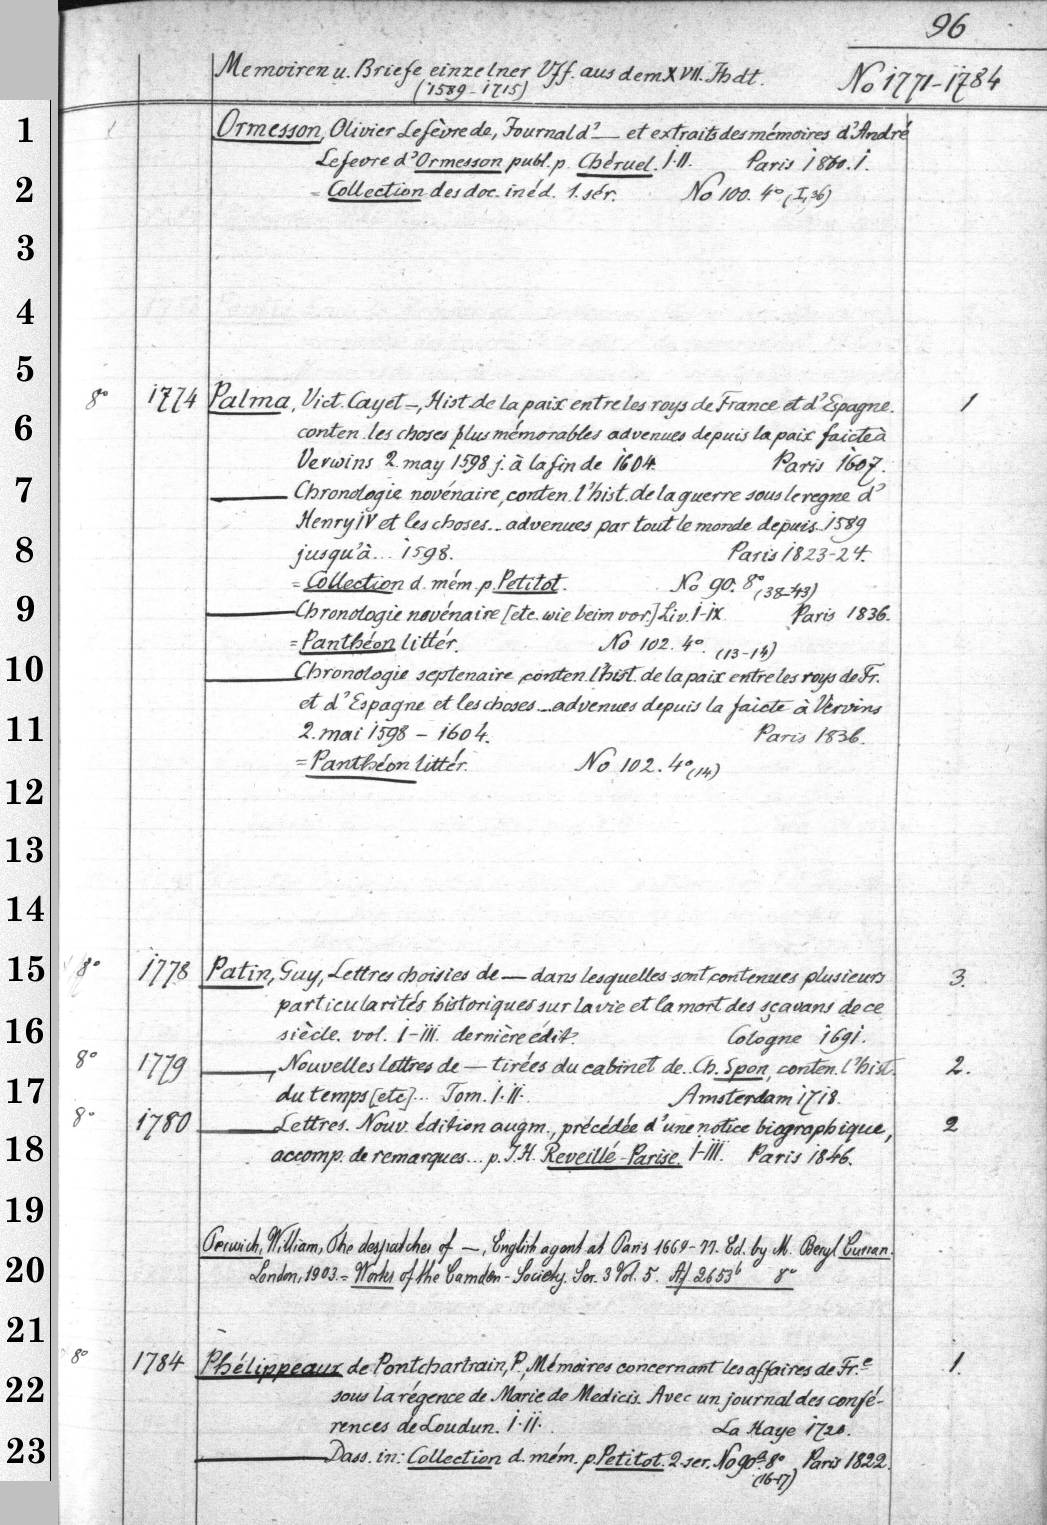 96
Memoiren u. Briefe einzelner Vff. aus dem XVII. Jhdt. No 1771-1784
(1589-1715)
1
Ormesson, Olivier Lefèvre de, Journal d'— et extraits des mémoires d'André
Lefevre d'Ormesson publ. p. Chéruel. I-II. Paris 1860. I.
2
= Collection des doc. inéd. 1. sér. No 100. 4° (I, 36)
3
4
5
8° 1774 Palma, Vict. Cayet —, Hist. de la paix entre les roys de France et d'Espagne. 1
6
conten. les choses plus mémorables advenues depuis la paix faicte à
Verwins 2. may 1598 j. à la fin de 1604. Paris 1607.
7
— Chronologie novénaire, conten. l'hist. de la guerre sous le regne d'
Henry IV et les choses... advenues par tout le monde depuis 1589
8
jusqu'à... 1598. Paris 1823-24.
= Collection d. mém. p. Petitot. No 90. 8° (38-43)
9
— Chronologie novénaire [etc. wie beim vor.] Liv. I-IX Paris 1836.
= Panthéon littér. No 102. 4°. (13-14)
10
— Chronologie septenaire conten. l'hist. de la paix entre les roys de Fr.
et d'Espagne et les choses... advenues depuis la faicte à Vervins
11
2. mai 1598 - 1604. Paris 1836.
= Panthéon littér. No 102. 4° (14)
12
13
14
15
8° 1778 Patin, Guy, Lettres choisies de — dans lesquelles sont contenues plusieurs 3.
particularités historiques sur la vie et la mort des sçavans de ce
16
siècle. vol. I-III. dernière édit. Cologne 1691.
8° 1779 —, Nouvelles lettres de — tirées du cabinet de Ch. Spon, conten. l'hist. 2.
17
du temps [etc]... Tom. I-II. Amsterdam 1718.
8° 1780 — Lettres. Nouv. édition augm., précédée d'une notice biographique, 2
18
accomp. de remarques... p. J. H. Reveillé-Parise. I-III. Paris 1846.
19
Perwich, William, The despatches of —, English agent at Paris 1669-77. Ed. by M. Beryl Curran.
20
London, 1903. = Works of the Camden-Society. Ser. 3 Vol. 5. Af 2653b 8°
21
8° 1784 Phélippeaux de Pontchartrain, P., Mémoires concernant les affaires de Fr.e 1.
22
sous la régence de Marie de Medicis. Avec un journal des confé-
rences de Loudun. I-II. La Haye 1720.
23
— Dass. in: Collection d. mém. p. Petitot. 2. ser. No 90a. 8° Paris 1822.
(16-17)